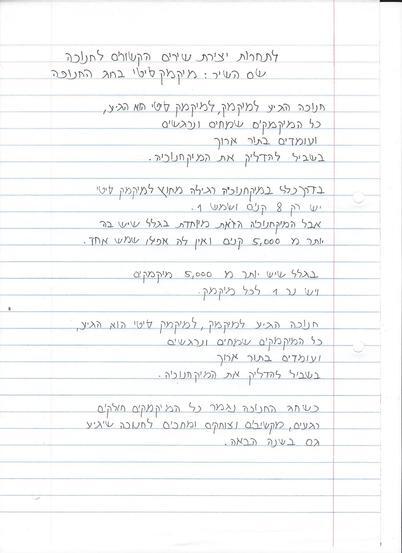 לתחרות יצירת שירים הקשורים לחנוכה
שם השיר: מיקמק סיטי בחג החנוכה
חנוכה הגיע למיקמק, למיקמק סיטי הוא הגיע,
כל המיקמקים שמחים ונרגשים
ועומדים בתור ארוך
בשביל להדליק את המיקחנוכיה.
בדרך כלל במיקחנוכיה רגילה מחוץ למיקמק סיטי
יש רק 8 קנים ושמש 1.
אבל המיקחנוכיה הזאת מיוחדת בגלל שיש בה
יותר מ 5,000 קנים ואין לה אפילו שמש אחד.
בגלל שיש יותר מ 5,000 מיקמקים
ויש נר 1 לכל מיקמק.
חנוכה הגיע למיקמק, למיקמק סיטי הוא הגיע,
כל המיקמקים שמחים ונרגשים
ועומדים בתור ארוך
בשביל להדליק את המיקחנוכיה.
כשחג החנוכה נגמר כל המיקמקים חולקים
רגעים, מקשיבים וצוחקים ומחכים לחנוכה שיגיע
גם בשנה הבאה.